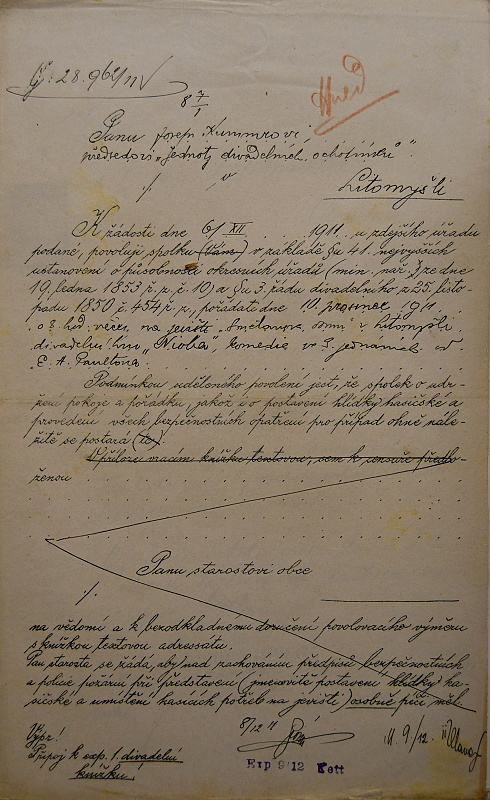 Č: 28.962/11 V
8 7/1
Ihned
Panu Josefu Kummrovi,
předsedovi „Jednoty divadelních ochotníků“.
Litomyšli
K žádosti dne 6/XII 1911. u zdejšího úřadu
podané, povoluji spolku (Vám) v základě §u 41. nejvyšších
ustanovení o působnosti okresních úřadů (min. nař. ze dne
19. ledna 1853 ř. z. č. 10) a §u 3. řádu divadelního z 25. listo-
padu 1850 č. 454 ř. z., pořádati dne 10. prosince 1911.
o 8. hod. večer, na jevišti „Smetanova domu“ v Litomyšli,
divadelní hru „Nioba“, komedie ve 3. jednáních od
E. A. Paultona.
Podmínkou uděleného povolení jest, že spolek o udr-
žení pokoje a pořádku, jakož i o postavení hlídky hasičské a
provedení všech bezpečnostních opatření pro případ ohně nále-
žitě se postará (te).
V příloze vracím knížku textovou, sem k censuře předlo-
ženou
Panu starostovi obce
na vědomí a k bezodkladnemu doručení povolovacího výměru
s knížkou textovou adressátu.
Pan starosta se žádá, aby nad zachováním předpisů bezpečnostních
a policie požární při představení (jmenovitě postavení hlídky ha-
sičské a umístění hasících potřeb na jevišti) osobně péči měl.
8/12 11
Vypr!
Připoj k exp. 1 divadelní
knížku!
9/12
Exp 9/12 Kett